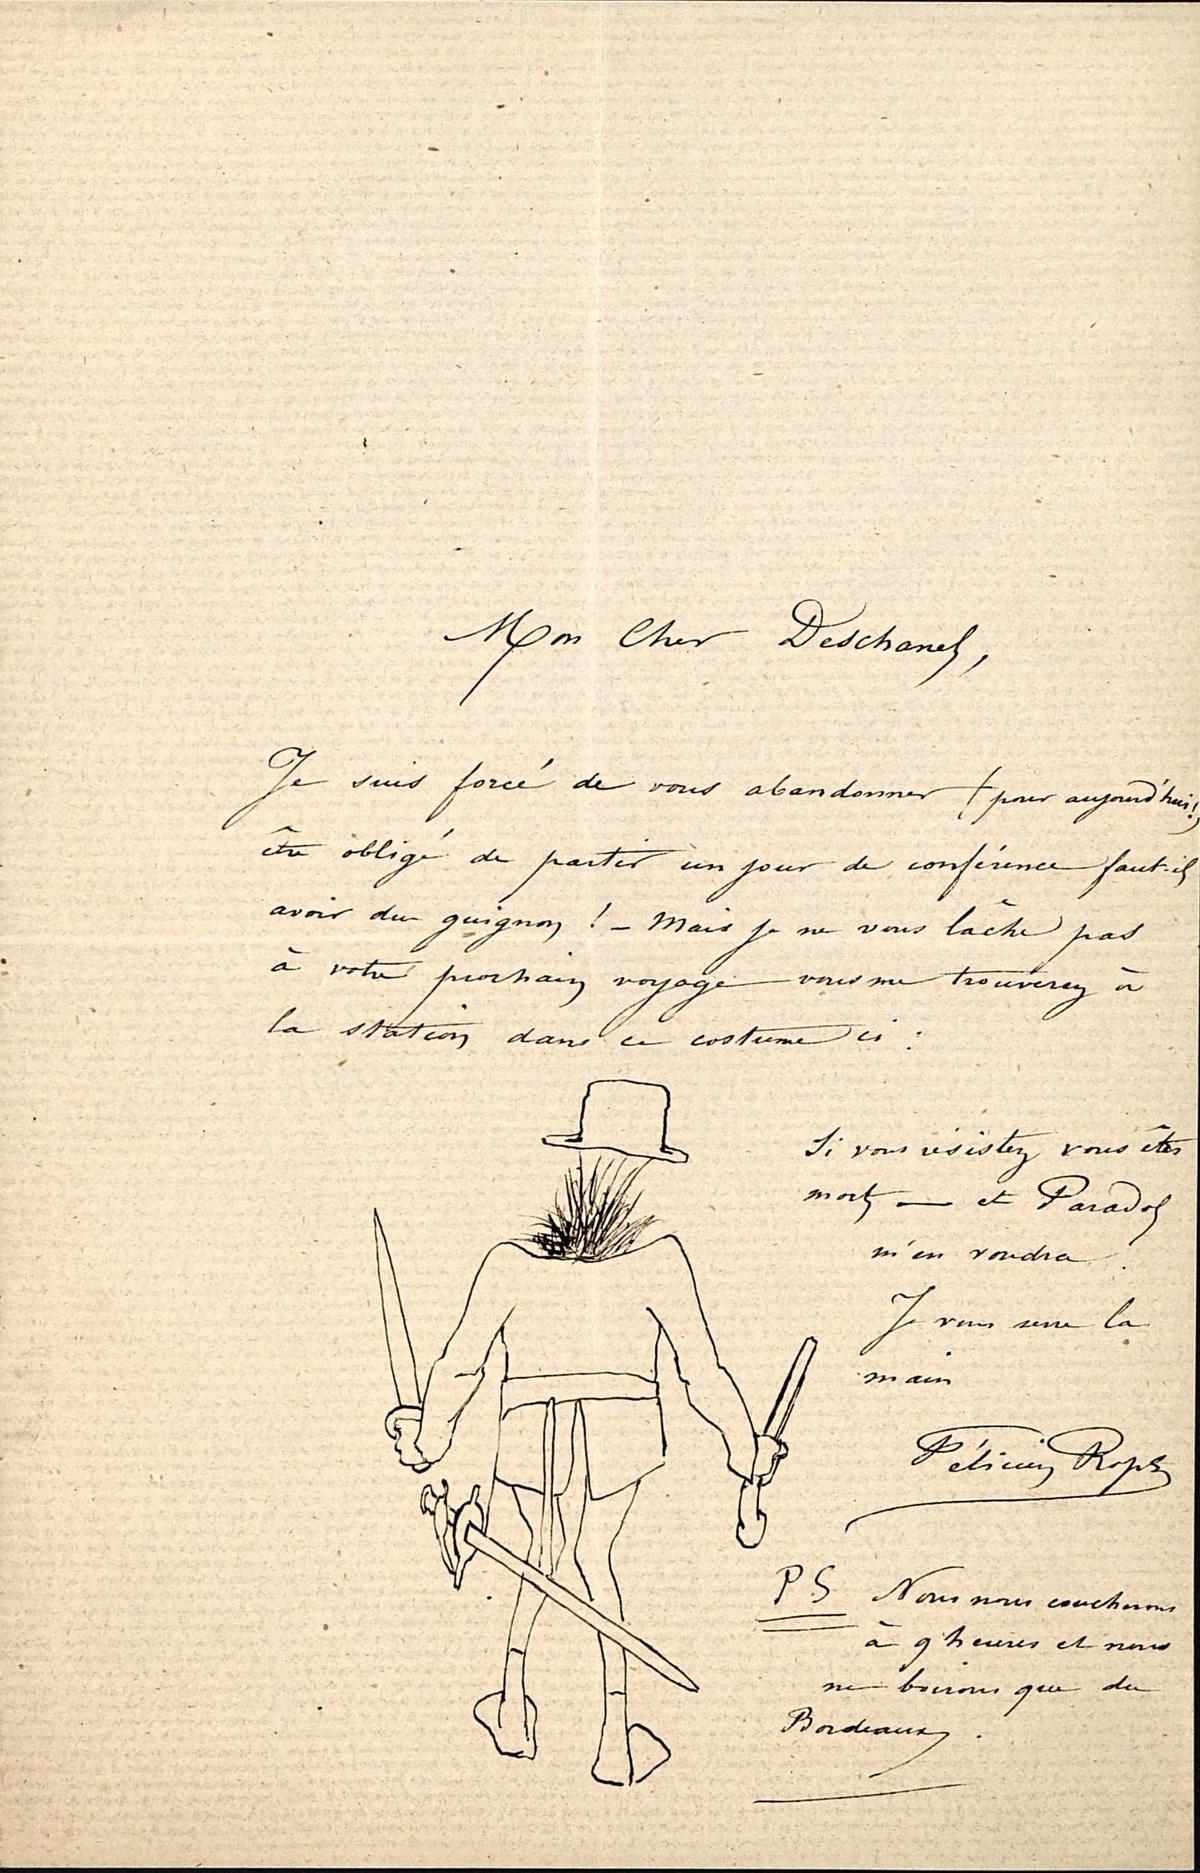 Mon Cher Deschanel,
Je suis forcé de vous abandonner (pour aujourd'hui!)
être obligé de partir un jour de conférence faut-il
avoir du guignon ! – Mais je ne vous lâche pas
à votre prochain voyage vous me trouverez à
la station dans ce costume ci :
Si vous résistez vous êtes
mort — et Paradol
m'en voudra.
Je vous serre la
main
Félicien Rops
PS Nous nous coucherons
à 9 heures et nous
ne boirons que du
Bordeaux.